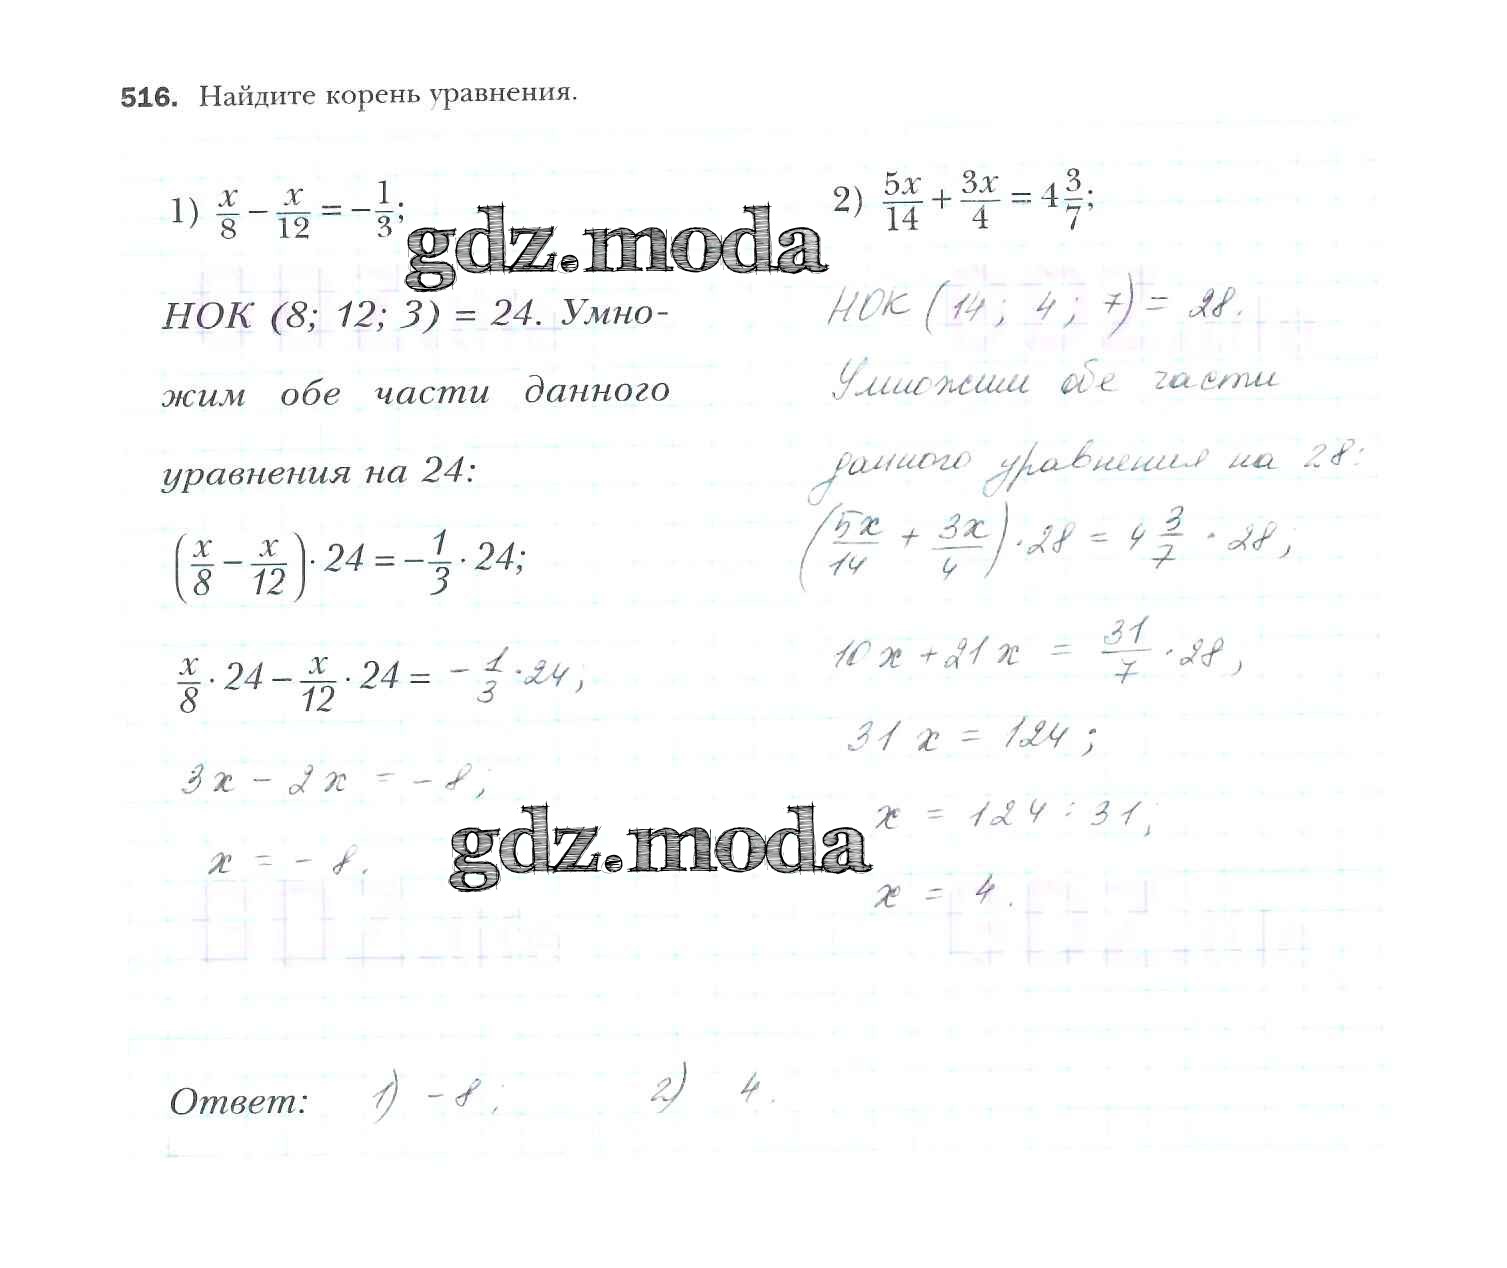 516. Найдите корень уравнения.
1) x/8 − x/12 = −1/3;
gdz.moda
НОК (8; 12; 3) = 24. Умно-
жим обе части данного
уравнения на 24:
(x/8 − x/12) · 24 = −1/3 · 24;
x/8 · 24 − x/12 · 24 = −1/3 · 24;
3x − 2x = −8;
x = −8.
2) 5x/14 + 3x/4 = 4 3/7;
НОК (14; 4; 7) = 28.
Умножим обе части
данного уравнения на 28:
(5x/14 + 3x/4) · 28 = 4 3/7 · 28;
10x + 21x = 31/7 · 28;
31x = 124;
x = 124 : 31;
x = 4.
gdz.moda
Ответ: 1) −8; 2) 4.